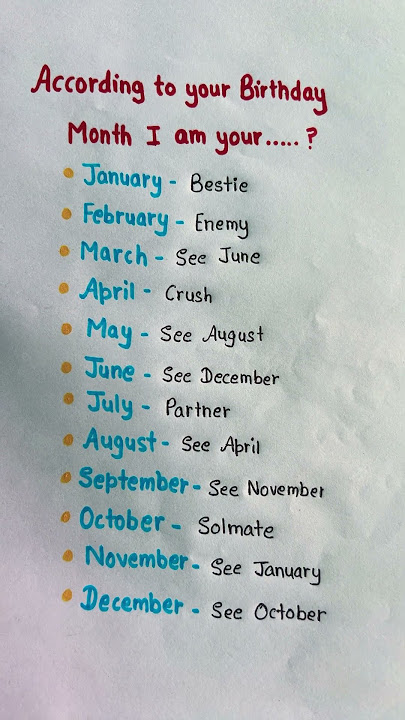 According to your Birthday
Month I am your.....?
January - Bestie
February - Enemy
March - See June
April - Crush
May - See August
June - See December
July - Partner
August - See April
September - See November
October - Solmate
November - See January
December - See October